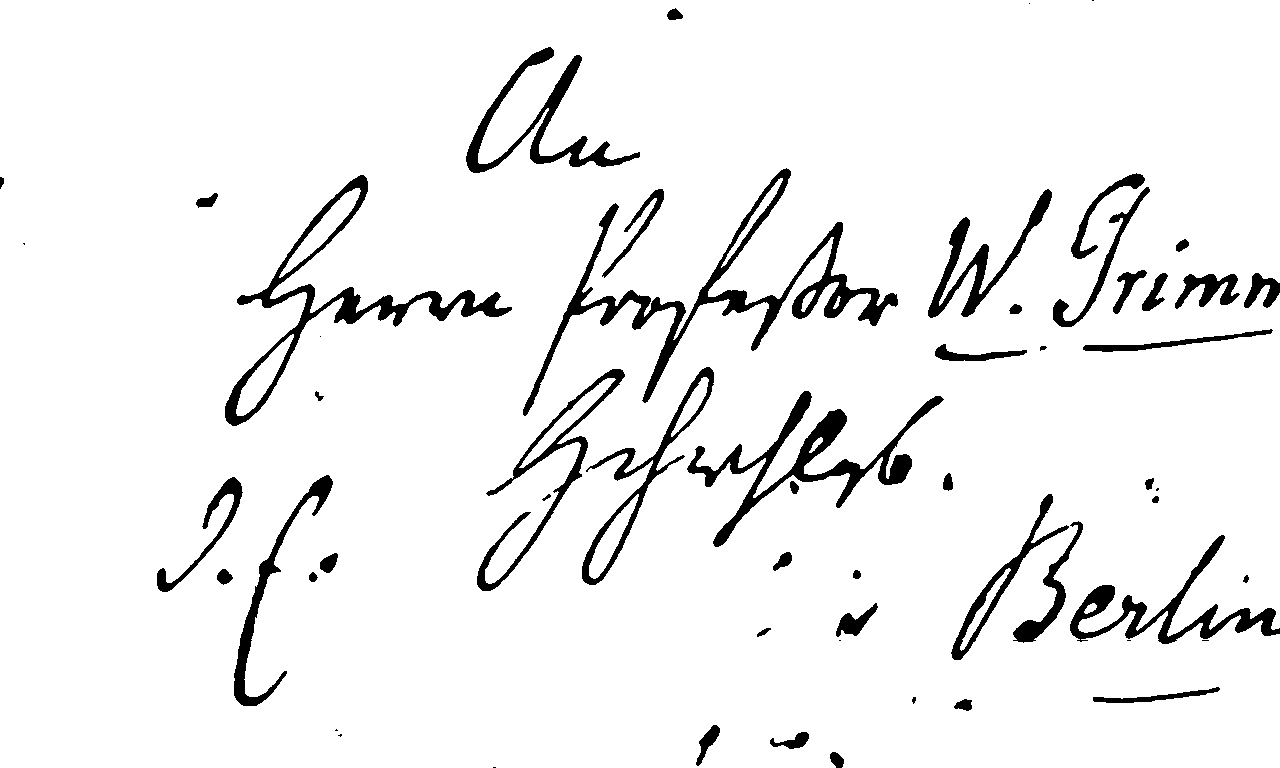 An
Herrn Professor W. Grimm
Hchwhlgb.
d. f.
in Berlin